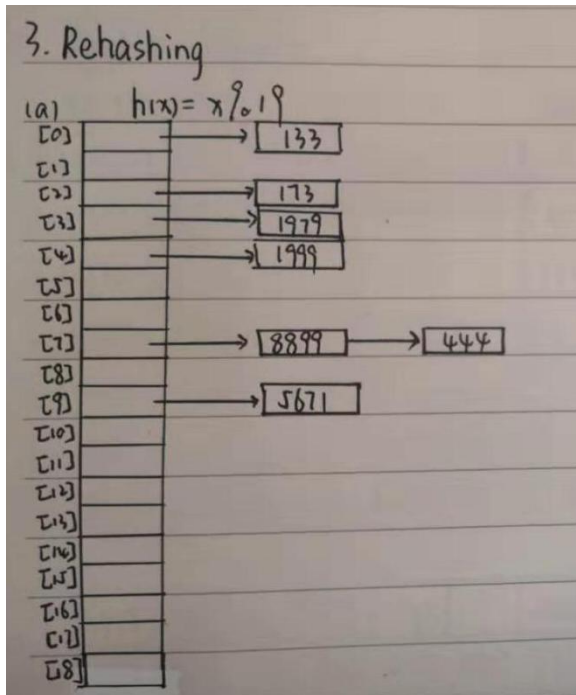 3. Rehashing
(a) h(x) = x % 19
[0] 133
[1]
[2] 173
[3] 1979
[4] 1999
[5]
[6]
[7] 8899 444
[8]
[9] 5671
[10]
[11]
[12]
[13]
[14]
[15]
[16]
[17]
[18]